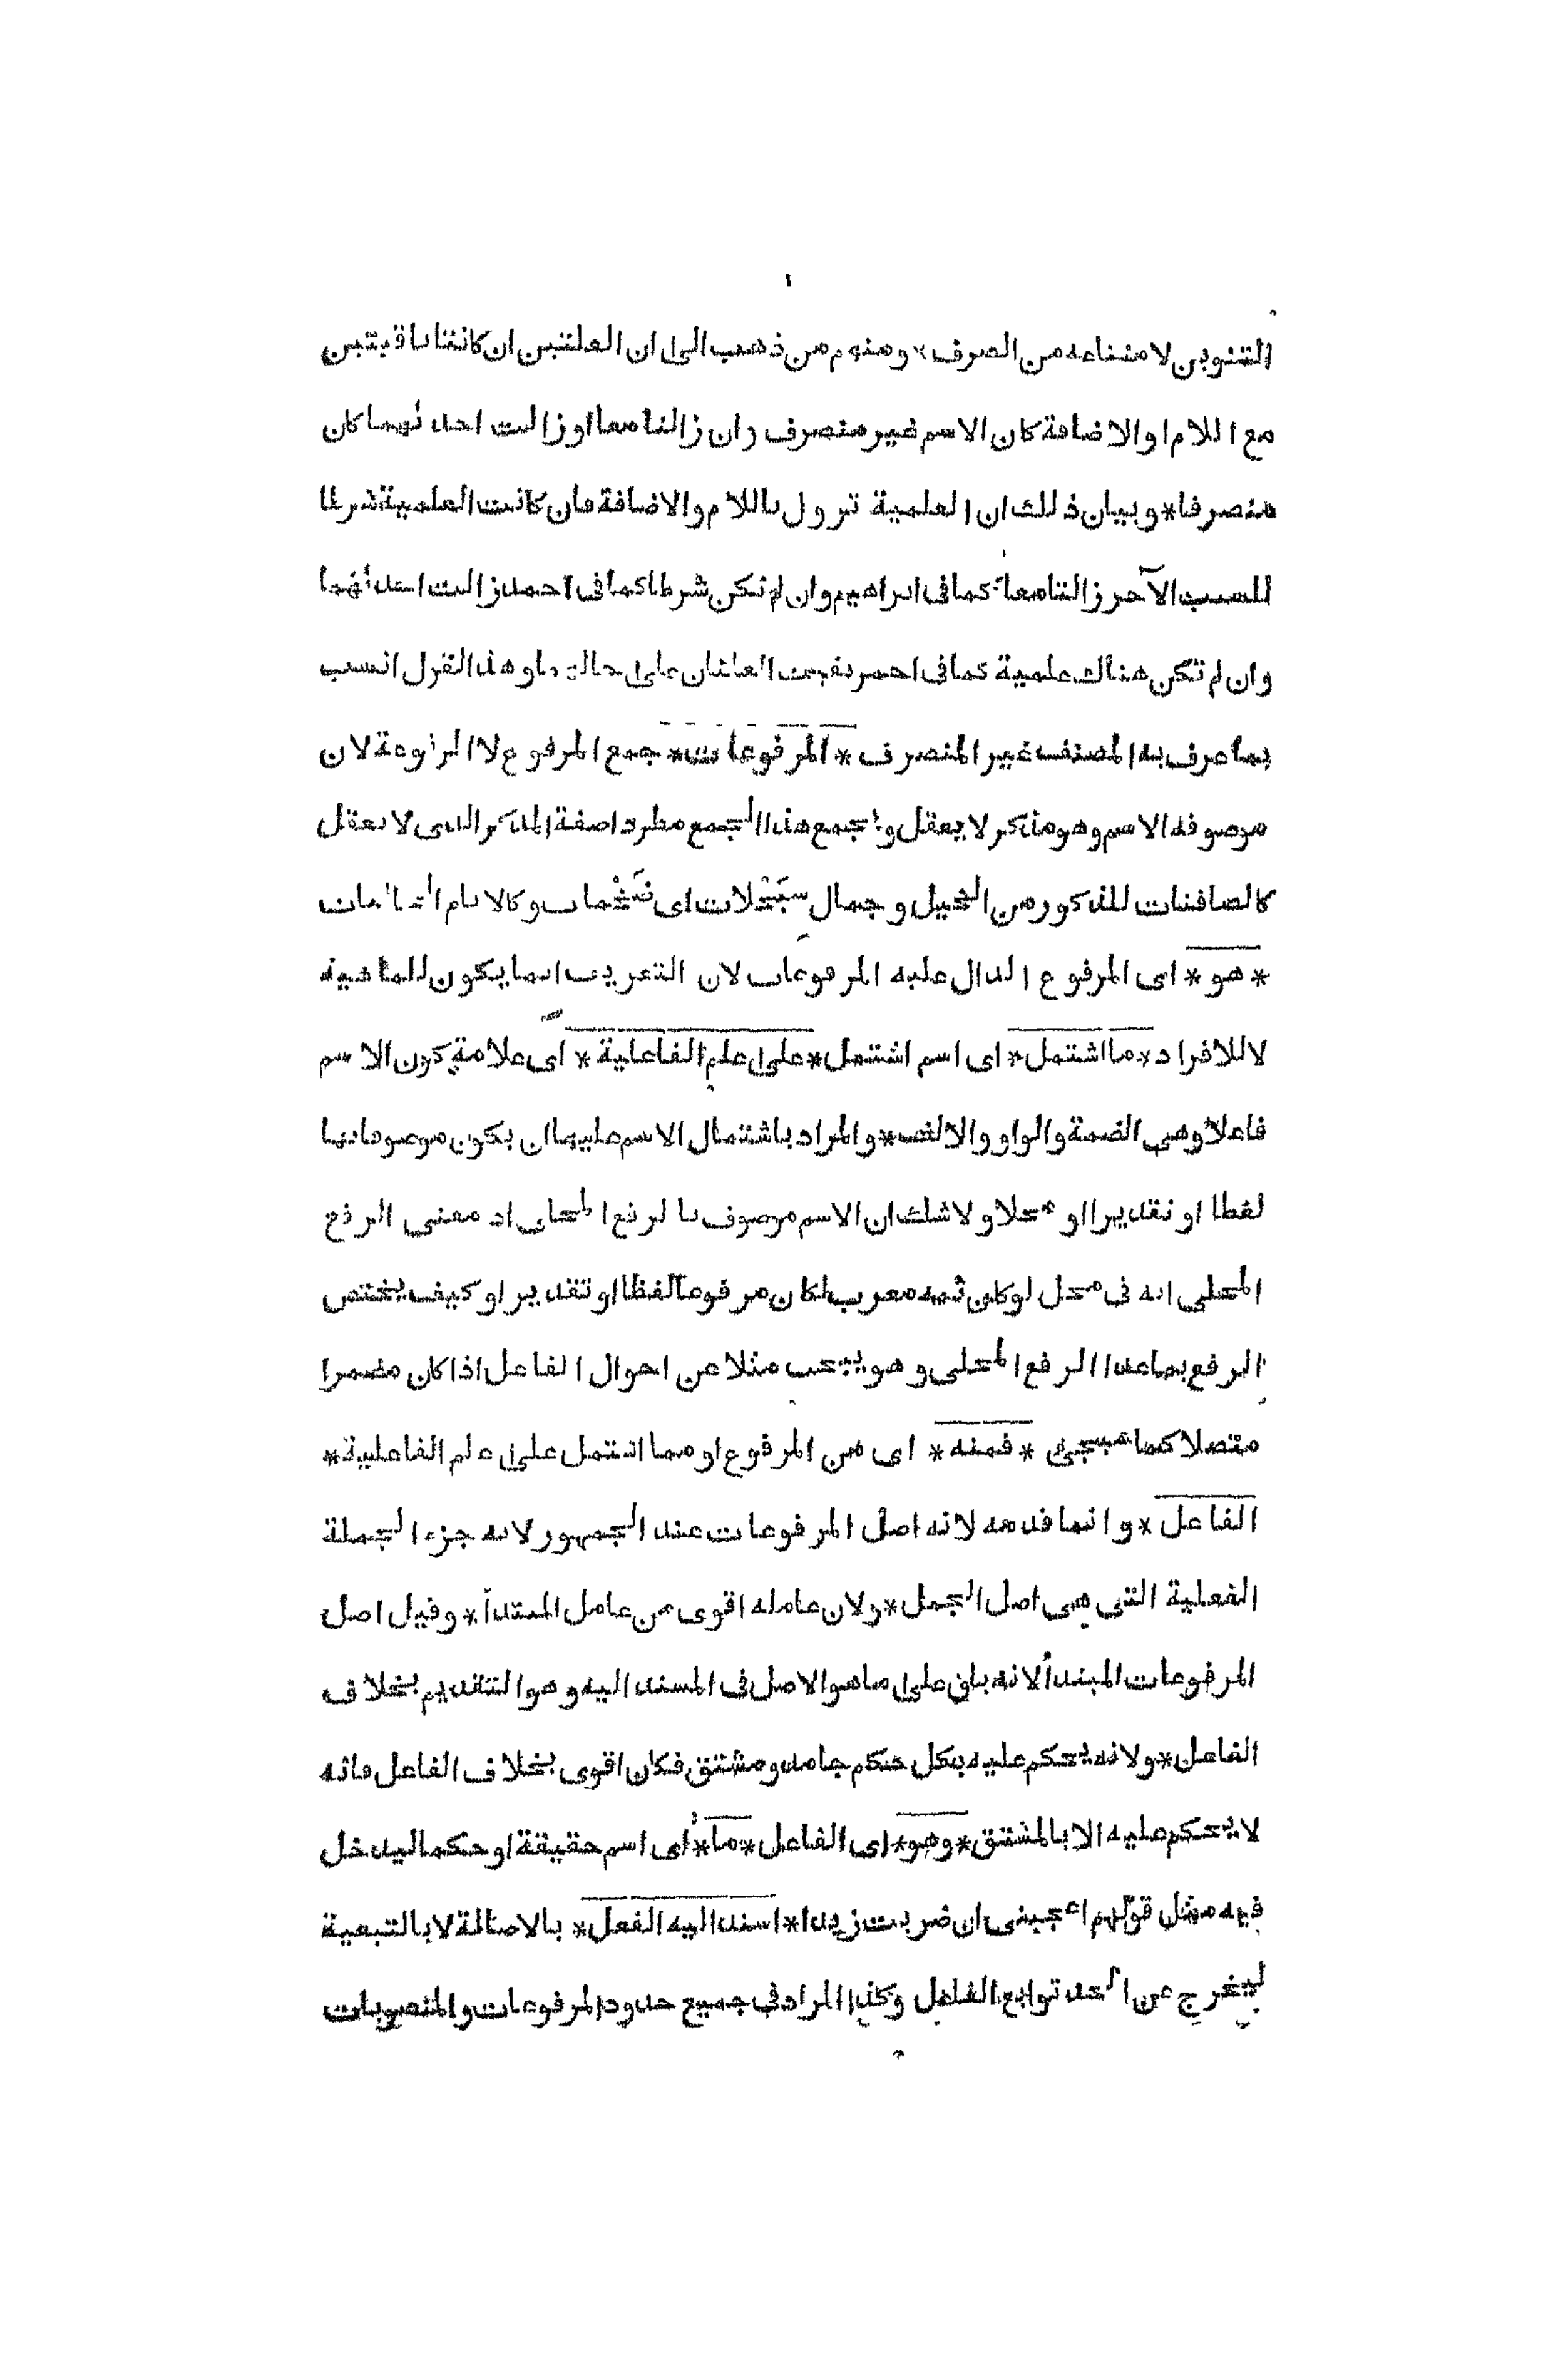 التنوين لامتناعه من الصرف * ومنهم من ذهب الى ان العلتين ان كانتا باقيتين
مع اللام او الاضافة كان الاسم غير منصرف وان زالتا معا او زالت احدىهما كان
منصرفا * وبيان ذلك ان العلمية تزول باللام والاضافة فان كانت العلمية شرطا
للسبب الآخر زالتا معا كما فى ابراهيم وان لم تكن شرطا كما فى احمد زالت احدىهما
وان لم تكن هناك علمية كما فى احمر بقيت العلتان على حالهما وهذا القول انسب
بما عرف به المصنف غير المنصرف * المرفوعات * جمع المرفوع لا المرفوعة لان
موصوفه الاسم وهو مذكر لا يعقل ويجمع هذا الجمع مطردا صفة المذكر الذى لا يعقل
كالصافنات للذكور من الخيل وجمال سبحلات اى ضخمات وكالايام الخاليات
* هو * اى المرفوع الدال عليه المرفوعات لان التعريف انما يكون للماهية
لا للافراد * ما اشتمل * اى اسم اشتمل * على علم الفاعلية * اى علامة كون الاسم
فاعلا وهى الضمة والواو والالف * والمراد باشتمال الاسم عليها ان يكون موصوفا بها
لفظا او تقديرا او محلا ولا شك ان الاسم موصوف بالرفع المحلى اذ معنى الرفع
المحلى انه فى محل لو كان ثمه معرب لكان مرفوعا لفظا او تقديرا وكيف يختص
الرفع بما عدا الرفع المحلى وهو يبحث مثلا عن احوال الفاعل اذا كان مضمرا
متصلا كما سيجئ * فمنه * اى من المرفوع او مما اشتمل على علم الفاعلية *
الفاعل * وانما قدمه لانه اصل المرفوعات عند الجمهور لانه جزء الجملة
الفعلية التى هى اصل الجمل * ولان عامله اقوى من عامل المبتدأ * وقيل اصل
المرفوعات المبتدأ لانه باق على ما هو الاصل فى المسند اليه وهو التقديم بخلاف
الفاعل * ولانه يحكم عليه بكل حكم جامد ومشتق فكان اقوى بخلاف الفاعل فانه
لا يحكم عليه الا بالمشتق * وهو * اى الفاعل * ما * اى اسم حقيقة او حكما ليدخل
فيه مثل قولهم اعجبنى ان ضربت زيدا * اسند اليه الفعل * بالاصالة لا بالتبعية
ليخرج عن الحد توابع الفاعل وكذا المراد فى جميع حدود المرفوعات والمنصوبات